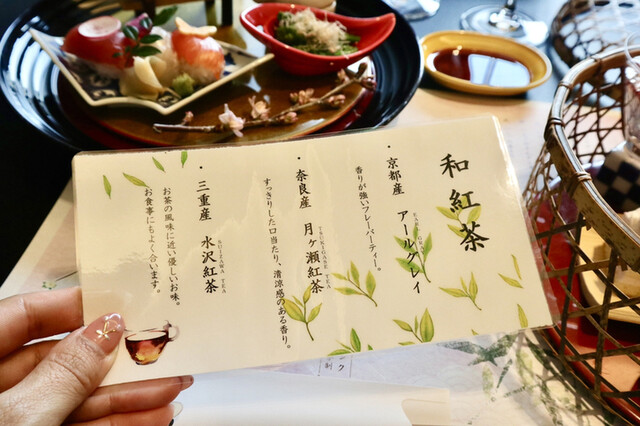 和紅茶
・京都産 アールグレイ
EARL GREY
香りが強いフレーバーティー。
・奈良産 月ヶ瀬紅茶
TSUKIGASE TEA
すっきりした口当たり、清涼感のある香り。
・三重産 水沢紅茶
SUIZAWA TEA
お茶の風味に近い優しいお味。
お食事にもよく合います。